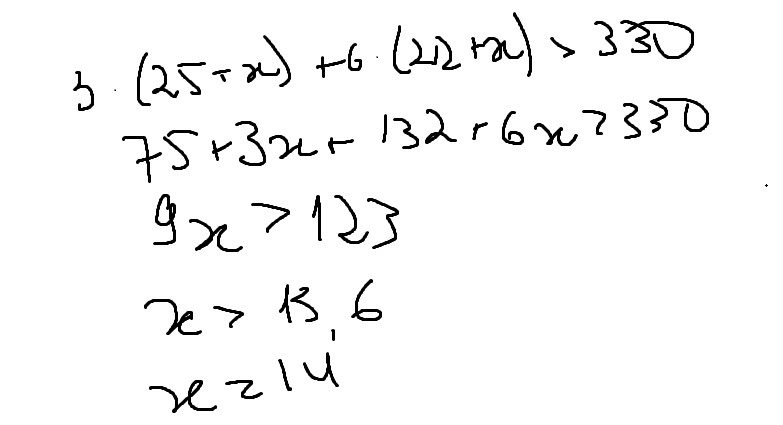 3 · (25+x) + 6 · (22+x) > 330
75+3x+ 132 + 6x > 330
9x > 123
x > 13,6
x = 14